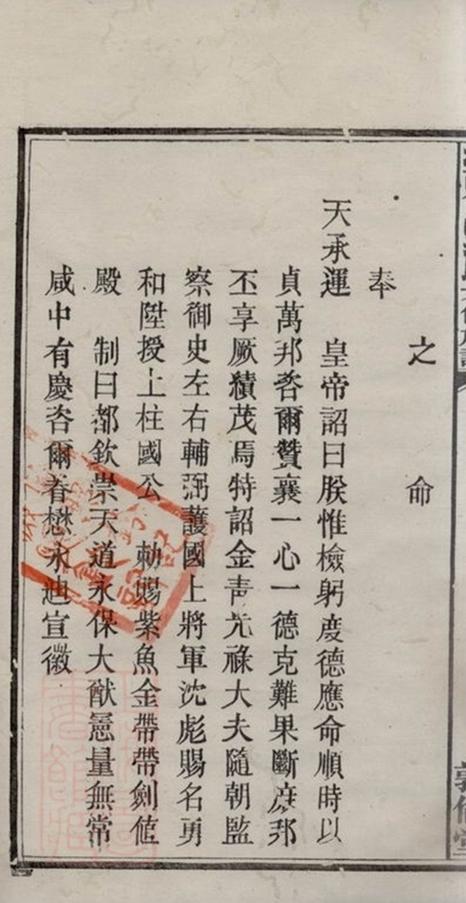 之命
奉
天承運　皇帝詔曰朕惟檢躬度德應命順時以
貞萬邦咨爾贊襄一心一德克難果斷庶邦
丕享厥績茂焉特詔金青光祿大夫隨朝監
察御史左右輔弼護國上將軍沈彪賜名勇
和陞授上柱國公　勅賜紫魚金帶帶劍値
殿　制曰都欽崇天道永保大猷憲量無常
咸中有慶咨爾眷懋永迪宣徽